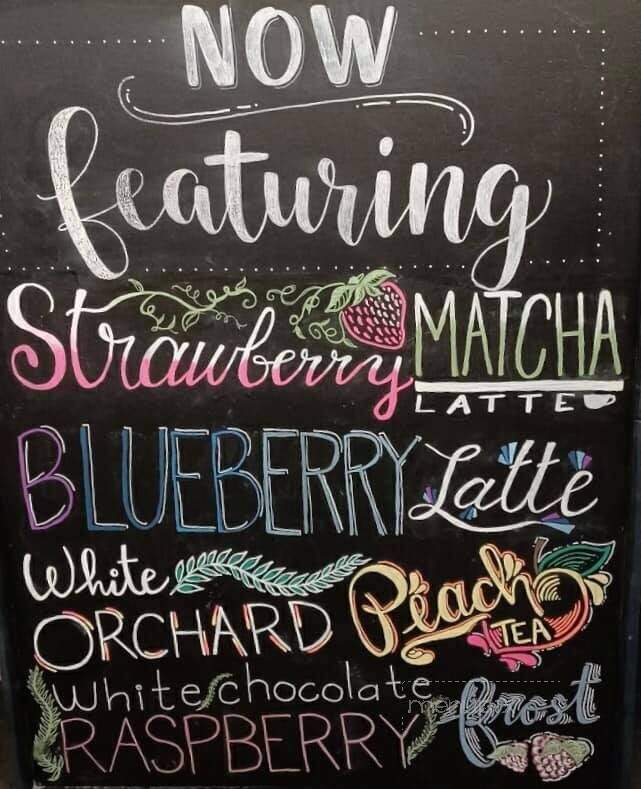 NOW
featuring
Strawberry MATCHA
LATTE
BLUEBERRY Latte
White
ORCHARD Peach
TEA
White chocolate
RASPBERRY frost